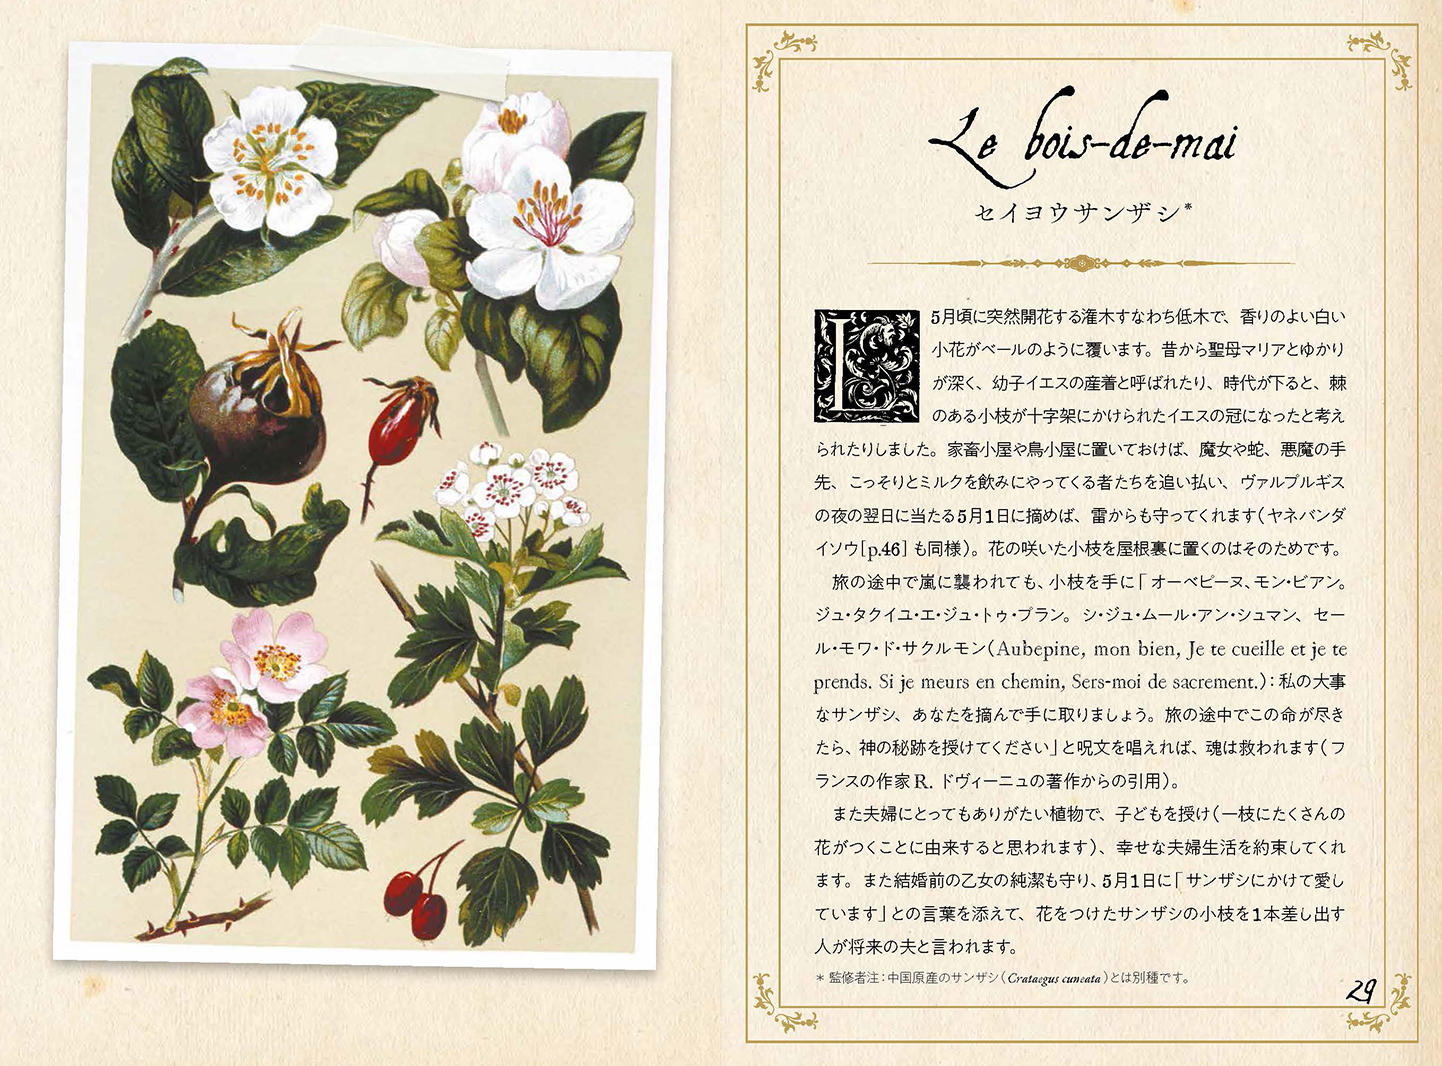 Le bois-de-mai
セイヨウサンザシ*
L
5月頃に突然開花する灌木すなわち低木で、香りのよい白い
小花がベールのように覆います。昔から聖母マリアとゆかり
が深く、幼子イエスの産着と呼ばれたり、時代が下ると、棘
のある小枝が十字架にかけられたイエスの冠になったと考え
られたりしました。家畜小屋や鳥小屋に置いておけば、魔女や蛇、悪魔の手
先、こっそりとミルクを飲みにやってくる者たちを追い払い、ヴァルプルギス
の夜の翌日に当たる5月1日に摘めば、雷からも守ってくれます(ヤネバンダ
イソウ[p.46]も同様)。花の咲いた小枝を屋根裏に置くのはそのためです。
旅の途中で嵐に襲われても、小枝を手に「オーベピーヌ、モン・ビアン。
ジュ・タクイユ・エ・ジュ・トゥ・プラン。シ・ジュ・ムール・アン・シュマン、セー
ル・モワ・ド・サクルモン(Aubepine, mon bien, Je te cueille et je te
prends. Si je meurs en chemin, Sers-moi de sacrement.):私の大事
なサンザシ、あなたを摘んで手に取りましょう。旅の途中でこの命が尽き
たら、神の秘跡を授けてください」と呪文を唱えれば、魂は救われます(フ
ランスの作家R. ドヴィーニュの著作からの引用)。
また夫婦にとってもありがたい植物で、子どもを授け(一枝にたくさんの
花がつくことに由来すると思われます)、幸せな夫婦生活を約束してくれ
ます。また結婚前の乙女の純潔も守り、5月1日に「サンザシにかけて愛し
ています」との言葉を添えて、花をつけたサンザシの小枝を1本差し出す
人が将来の夫と言われます。
* 監修者注:中国原産のサンザシ(Crataegus cuneata)とは別種です。
29